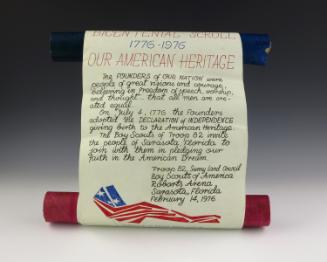 BICENTENIAL SCROLL
1776-1976
OUR AMERICAN HERITAGE
The FOUNDERS of OUR NATION were
people of great visions and courage,
believing in freedom of speech, worship,
and thought... that all men are cre-
ated equal.
On July 4, 1776 the Founders
adopted the DECLARATION of INDEPENDENCE
giving birth to the American Heritage.
The Boy Scouts of Troop 82 invite
the people of Sarasota, Florida to
join with them in pledging our
faith in the American Dream.
Troop 82, Sunny Land Council
Boy Scouts of America
Robarts Arena
Sarasota, Florida
February 14, 1976